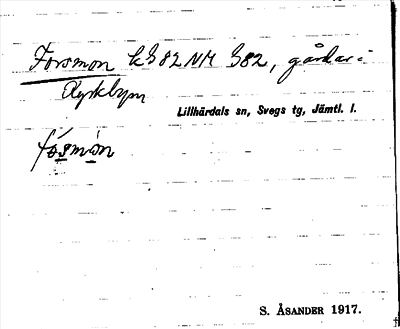 Forsmon k G 82 NM G82, gårdar i
Kyrkbyn
Lillhärdals sn, Svegs tg, Jämtl. l.
fósmòn
S. ÅSANDER 1917.